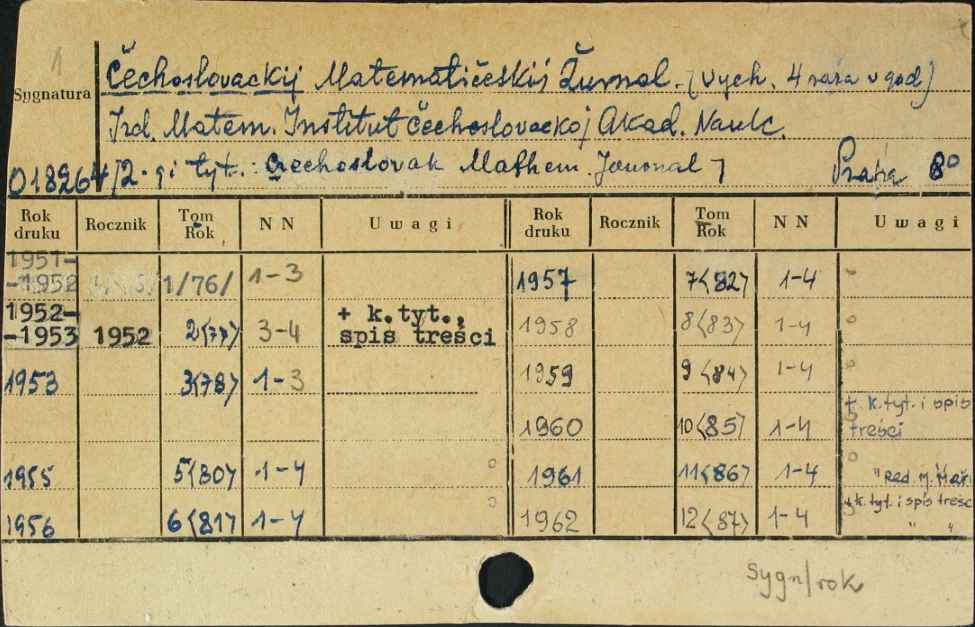 1
Čechoslovackij Matematičeskij Žurnal. (Vych. 4 raza v god)
Sygnatura
Izd. Matem. Institut Čechoslovackoj Akad. Nauk.
018264 /2-gi tyt.: Czechoslovak Mathem. Journal/ Praha 8°
Rok druku Rocznik Tom Rok NN Uwagi Rok druku Rocznik Tom Rok NN Uwagi
1951-
-1952 1/76/ 1-3 1957 7<82> 1-4 "
1952-
-1953 1952 2<77> 3-4 + k.tyt., spis treści 1958 8<83> 1-4 "
1953 3<78> 1-3 1959 9<84> 1-4 "
1960 10<85> 1-4 + k.tyt. i spis treści
1955 5<80> 1-4 1961 11<86> 1-4 "
1956 6<81> 1-4 1962 12<87> 1-4 + k.tyt. i spis treśc
Sygn/rok